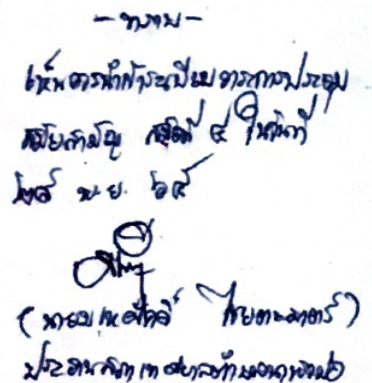 - ทราบ -
เห็นควรนำเข้าระเบียบวาระการประชุม
สมัยสามัญ สมัยที่ ๔ ในวันที่
๒๙ พ.ย. ๖๕
(นาย ไชยตะมาตร์)
ประธานสภาเทศบาลตำบล